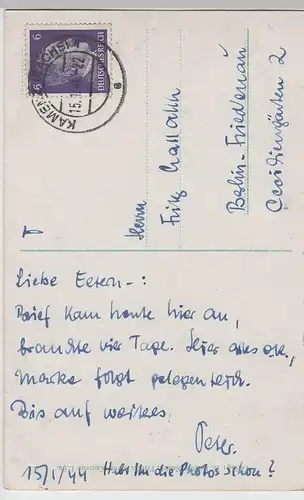 6 6
DEUTSCHES REICH
KAMENZ (SACHSEN)
15.1
Herrn
Fritz
Berlin-Friedenau
2
Liebe Eltern-:
Brief kam heute hier an,
brauchte vier Tage. Hier alles ok.,
Marke folgt gelegentlich.
Bis auf weiteres,
Peter.
15/1/44 Habt Ihr die Photos schon?